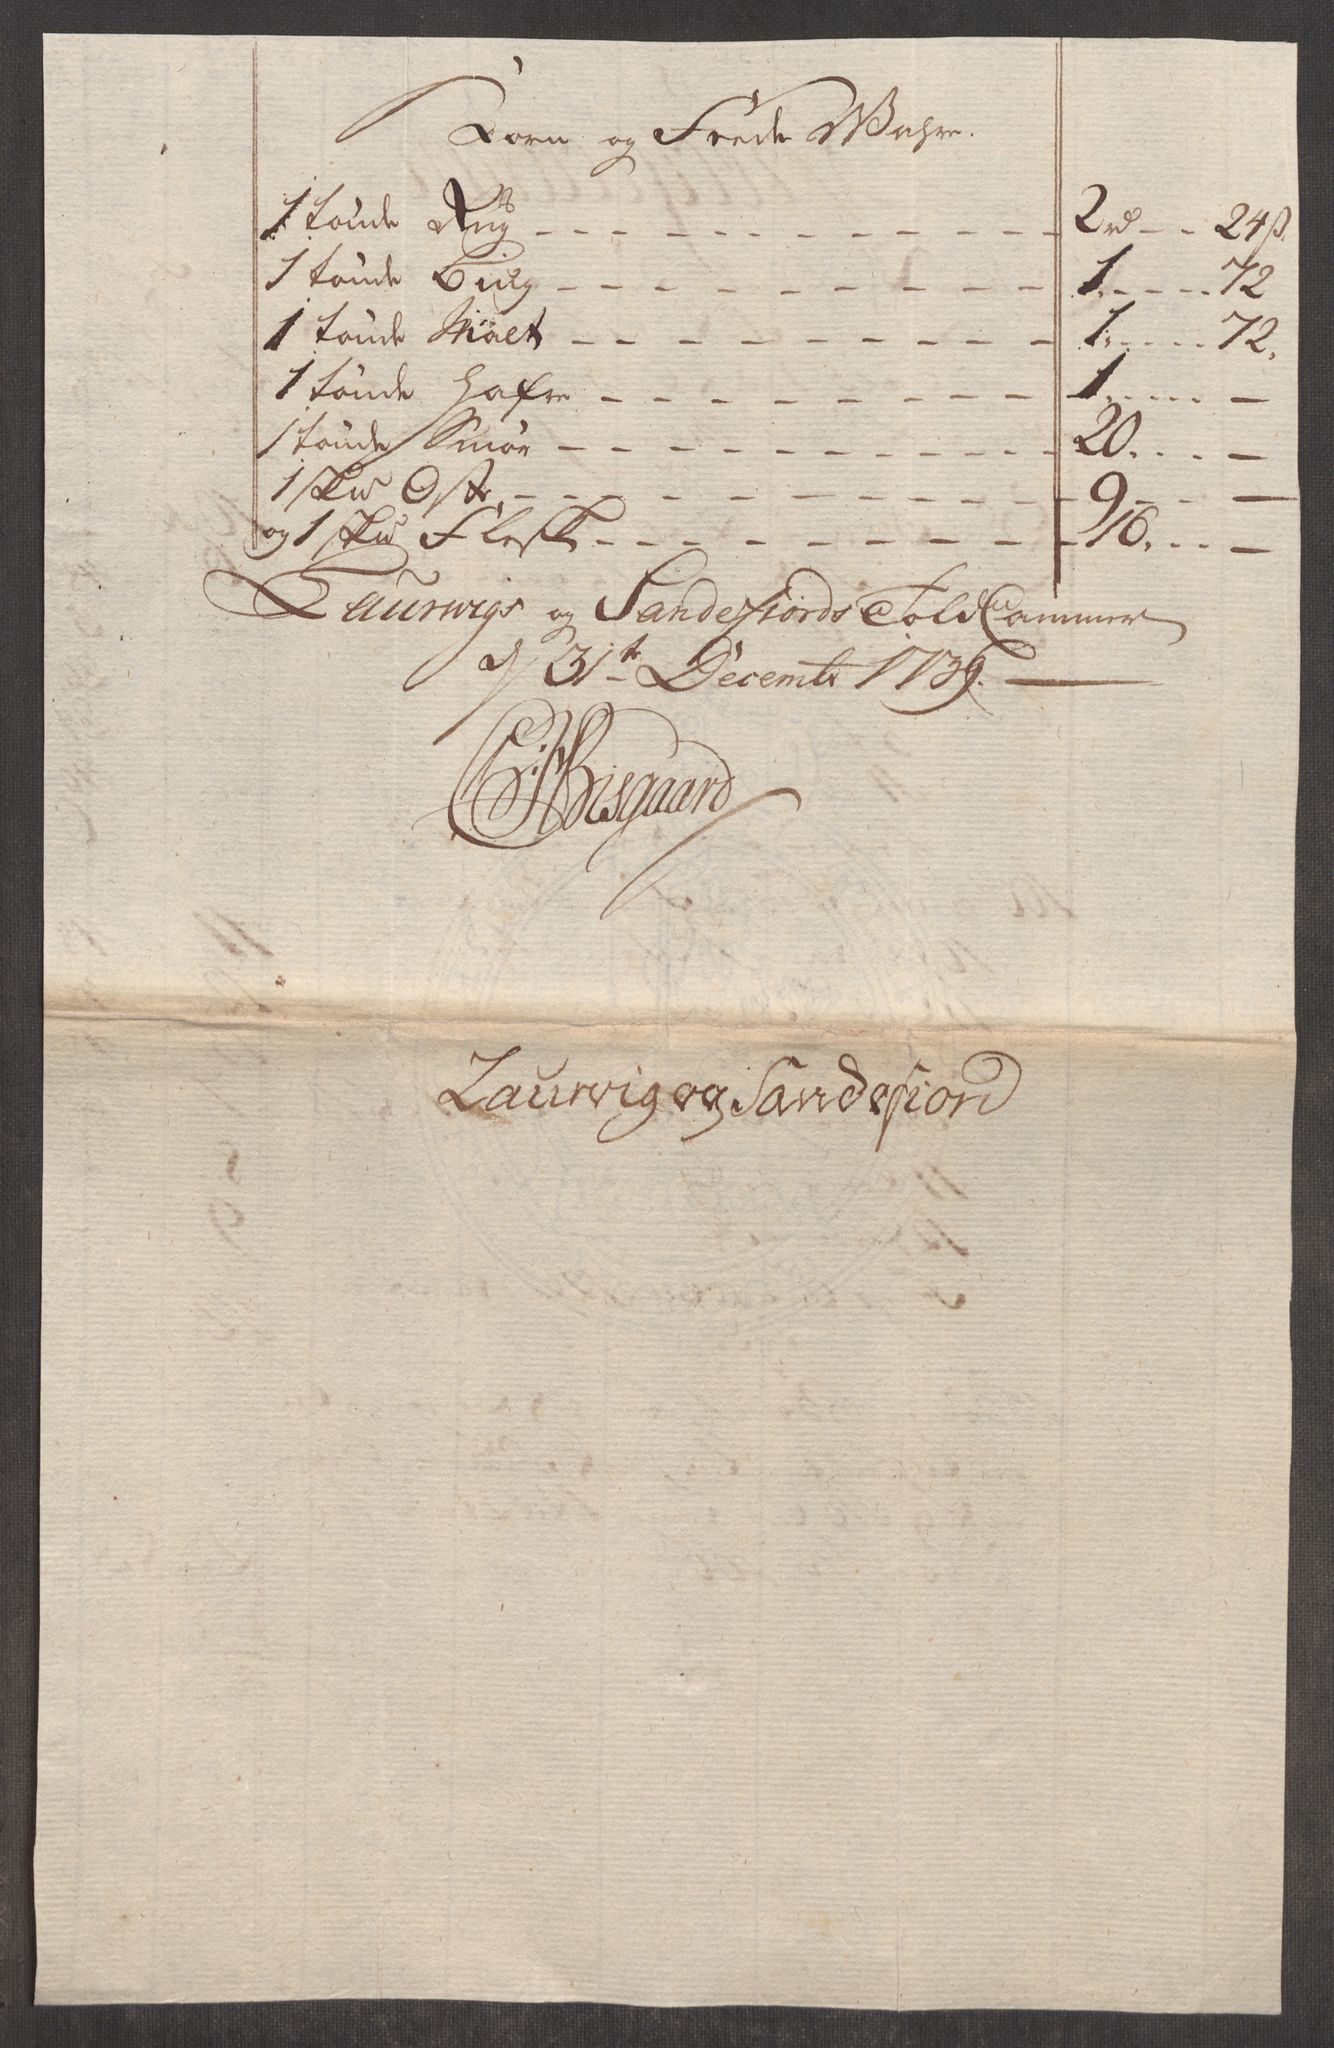 Korn og Fede Wahre.
1 tönde Rug 2 rd 24 ß.
1 tönde Biug 1. 72
1 tönde Malt 1. 72.
1 tönde Hafre 1.
1 tönde Smör 20.
1 sk℔ Ost 9
og 1 sk℔ Flesk 16.
Laurwigs og Sandefiords Told Cammer
d 31te Decembr 1739.
Bisgaard
Laurvig og Sandefiord